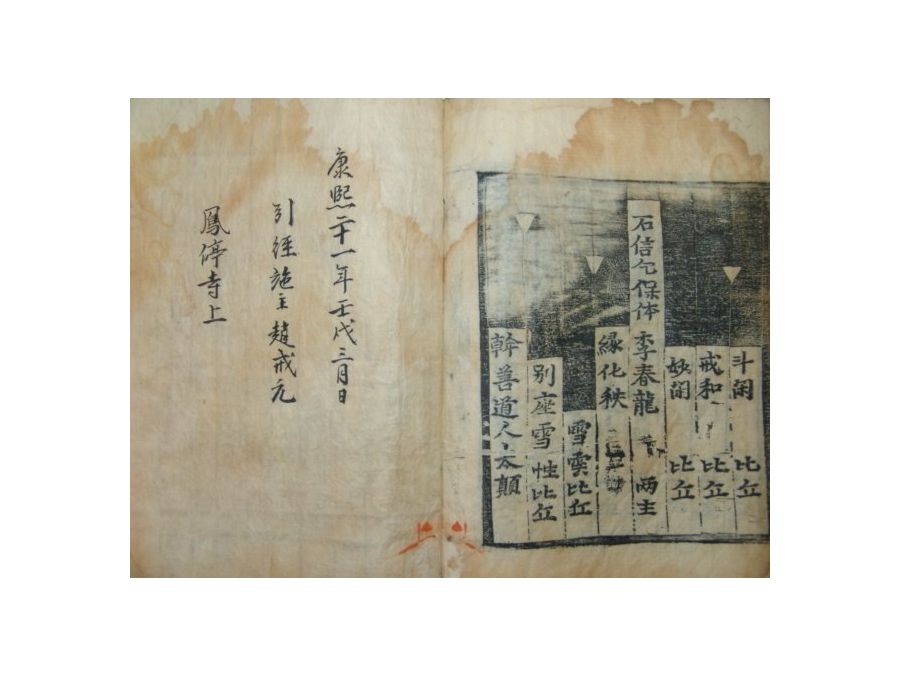 斗閑 比丘
戒和 比丘
妙閑 比丘
石信乞保体 李春龍 两主
緑化秩
雪雲比丘
别座雪性比丘
幹善道人太顛
康熙二十一年壬戌三月日
引經施主趙戒元
鳳停寺上